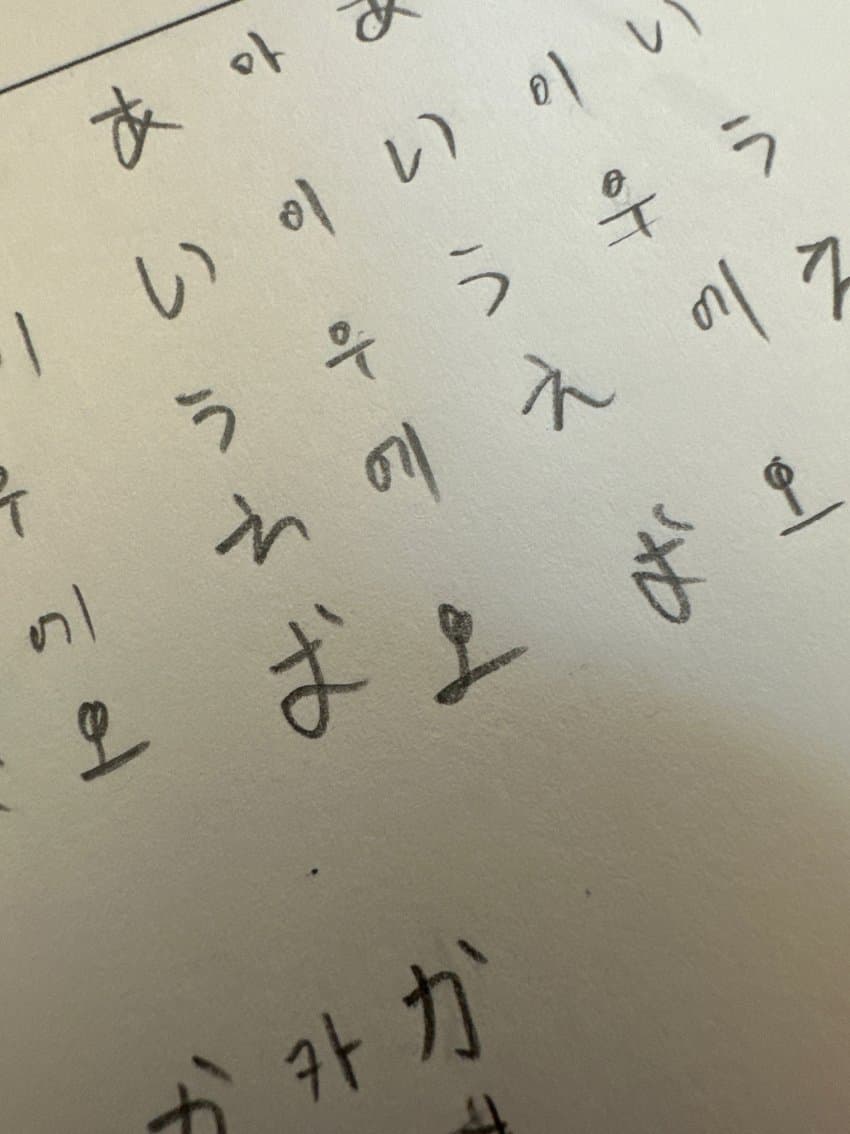 あ 아 あ
い 이 い 이 い
う 우 う 우 う
에 え 에 え 에 え
오 お 오 お 오
か 카 か